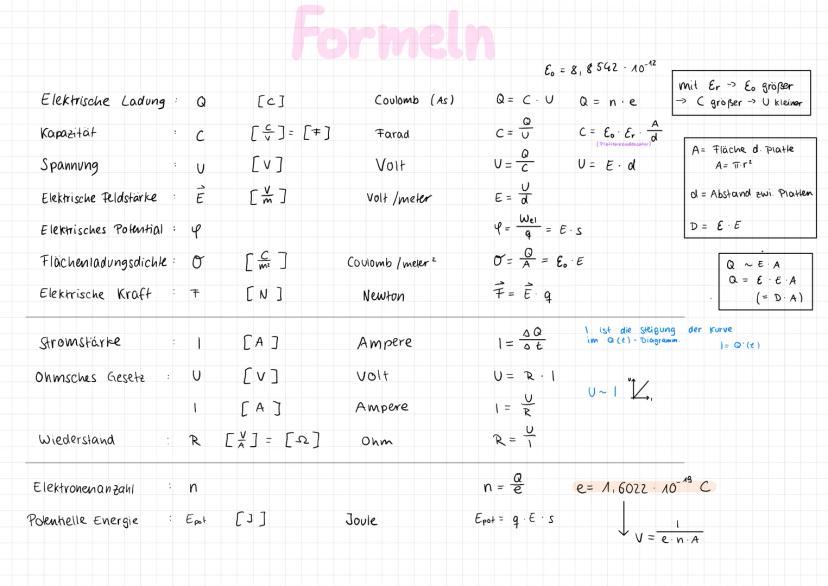 Formeln
ε₀ = 8,8542 · 10⁻¹²
mit εr → ε₀ größer
→ C größer → U kleiner
Elektrische Ladung : Q [C] Coulomb (As) Q = C · U Q = n · e
Kapazität : C [C/V] = [F] Farad C = Q/U C = ε₀ · εr · A/d
(Plattenkondensator)
Spannung : U [V] Volt U = Q/C U = E · d
Elektrische Feldstärke : E⃗ [V/m] Volt/meter E = U/d
Elektrisches Potential : φ φ = Wel/q = E · s
Flächenladungsdichte : σ [C/m²] Coulomb/meter² σ = Q/A = ε₀ · E
Elektrische Kraft : F [N] Newton F⃗ = E⃗ · q
A = Fläche d. Platte
A = π · r²
d = Abstand zwi. Platten
D = ε · E
Q ~ E · A
Q = ε · E · A
(= D · A)
Stromstärke : I [A] Ampere I = ΔQ/Δt
I ist die steigung der Kurve
im Q(t) - Diagramm. I = Q'(t)
Ohmsches Gesetz : U [V] Volt U = R · I
U ~ I
I [A] Ampere I = U/R
Wiederstand : R [V/A] = [Ω] Ohm R = U/I
Elektronenanzahl : n n = Q/e e = 1,6022 · 10⁻¹⁹ C
Potentielle Energie : Epot [J] Joule Epot = q · E · s
V = I/(e · n · A)